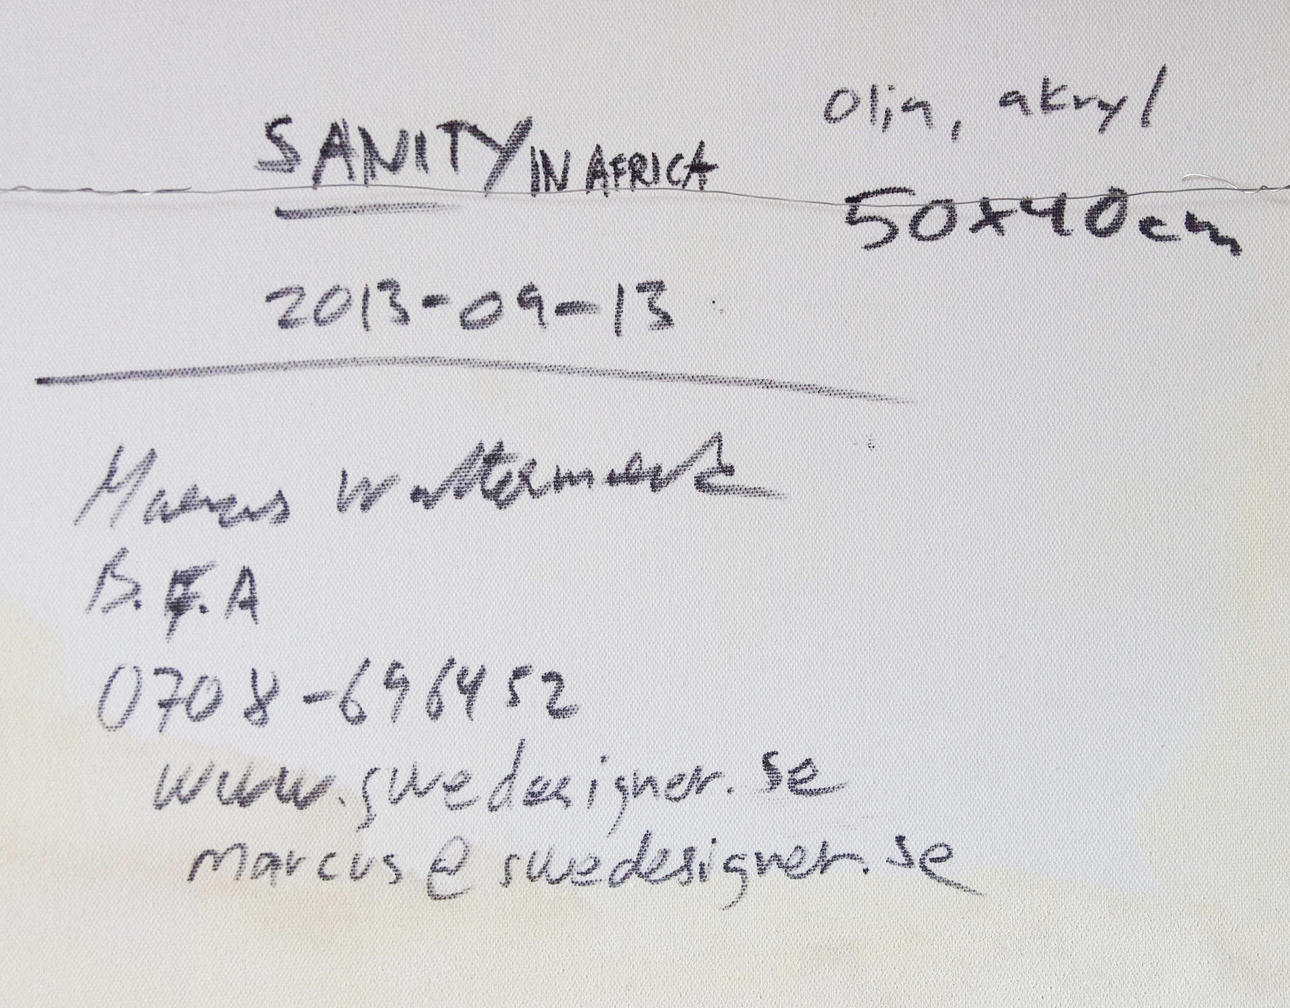 SANITY IN AFRICA
Olja, akryl
50x40cm
2013-09-13
Marcus
B.F.A
0708-696452
www.swedesigner.se
marcus@swedesigner.se